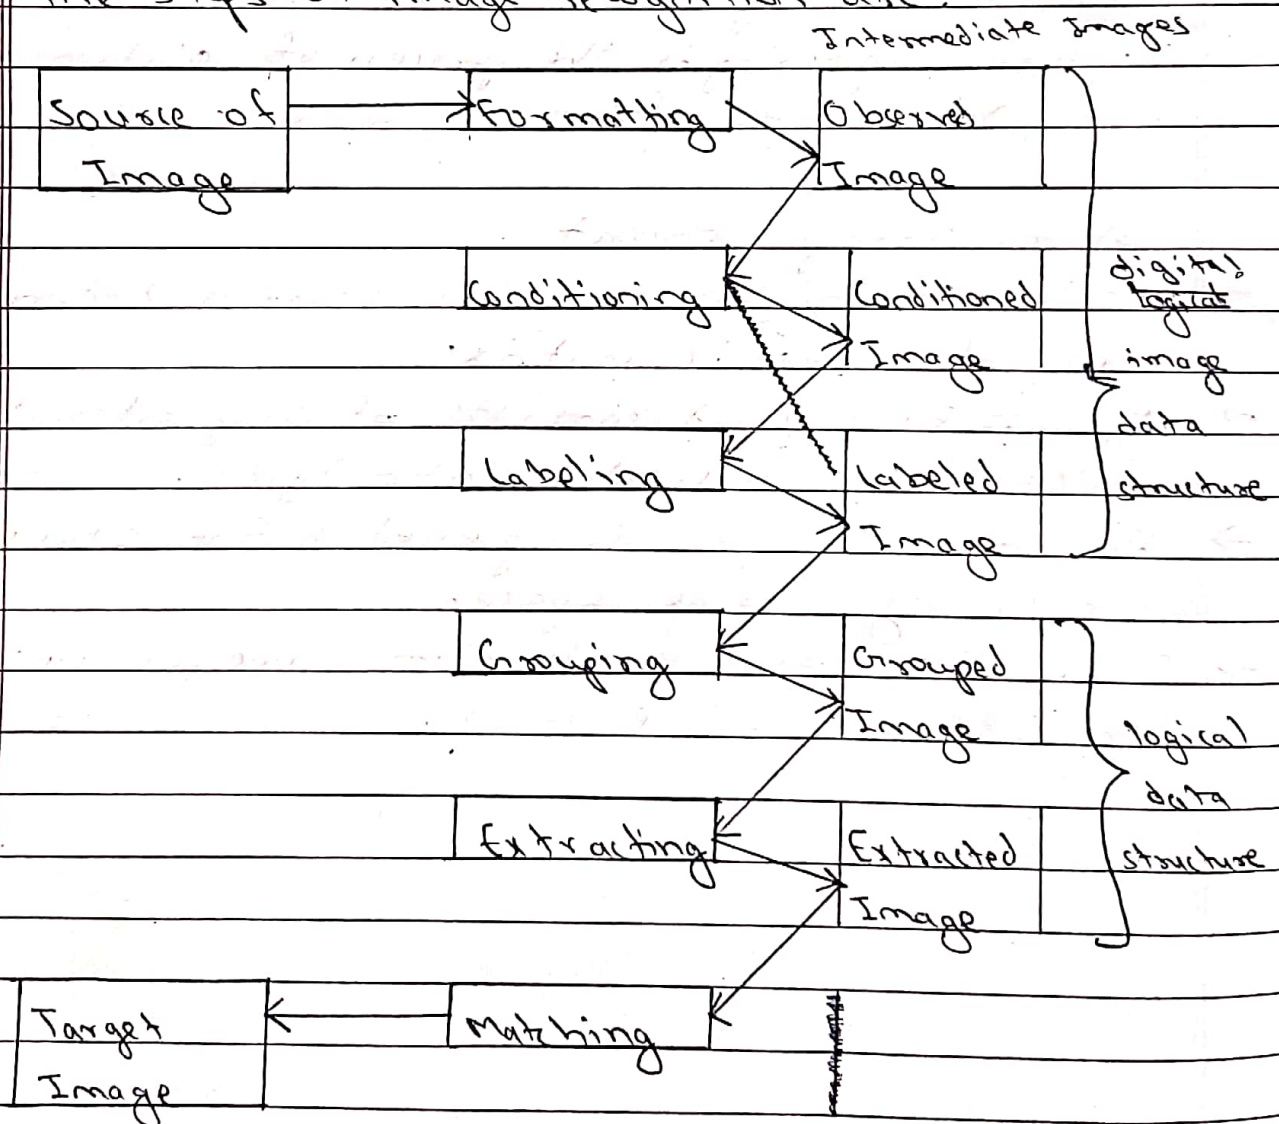 The steps of image recognition are:
Intermediate Images
Source of
Image
Formatting
Observed
Image
Conditioning
Conditioned
Image
digital
logical
image
data
structure
Labeling
Labeled
Image
Grouping
Grouped
Image
logical
data
structure
Extracting
Extracted
Image
Target
Image
Matching